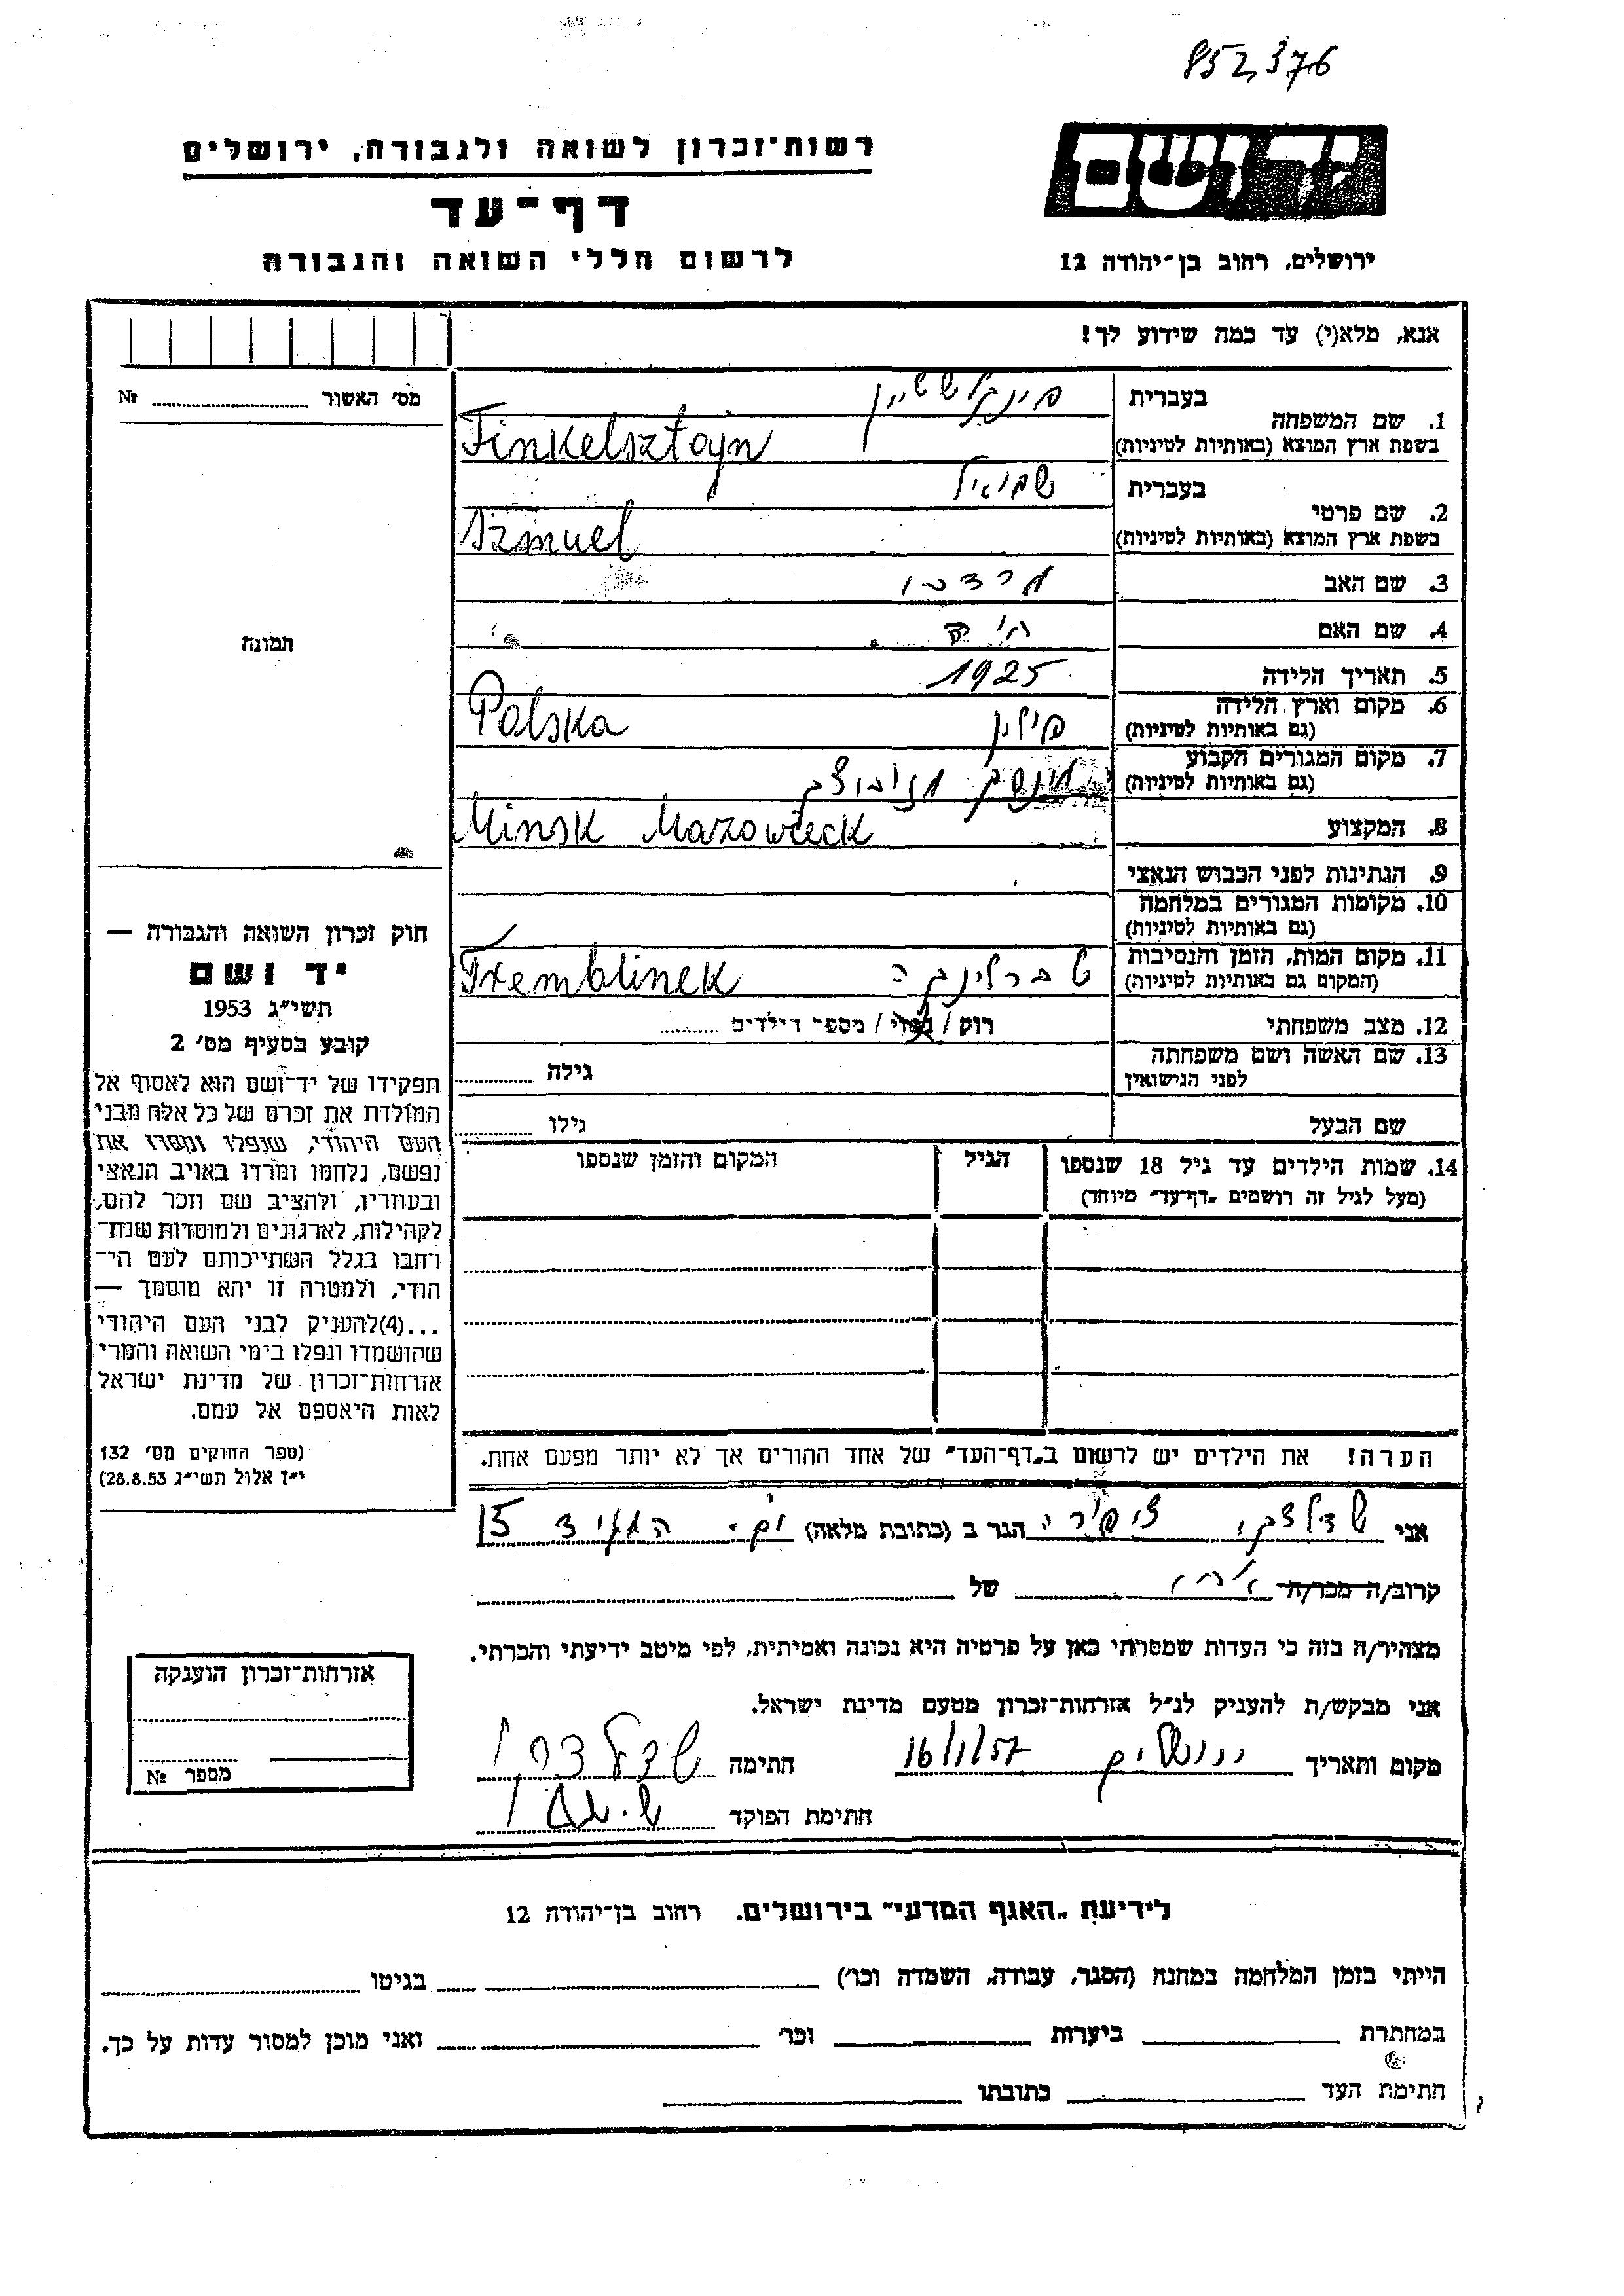 852,376
יד ושם
רשות־זכרון לשואה ולגבורה, ירושלים
דף־עד
לרשום חללי השואה והגבורה
ירושלים, רחוב בן־יהודה 12
אנא, מלא(י) עד כמה שידוע לך!
מס' האשור № 
בעברית
1. שם המשפחה
בשפת ארץ המוצא (באותיות לטיניות)
פינקלשטיין
Finkelsztajn
בעברית שמואל
2. שם פרטי
בשפת ארץ המוצא (באותיות לטיניות)
Szmuel
3. שם האב מרדכי
4. שם האם
5. תאריך הלידה 1925
6. מקום וארץ הלידה
(גם באותיות לטיניות)
פולין Polska
7. מקום המגורים הקבוע
(גם באותיות לטיניות)
מינסק
8. המקצוע
Minsk Mazowieck
9. הנתינות לפני הכבוש הנאצי
10. מקומות המגורים במלחמה
(גם באותיות לטיניות)
11. מקום המות, הזמן והנסיבות
(המקום גם באותיות לטיניות)
טברלינקה Tremblinek
12. מצב משפחתי רוק / נשוי / מספר הילדים
13. שם האשה ושם משפחתה
לפני הנישואין
גילה
שם הבעל גילו
14. שמות הילדים עד גיל 18 שנספו
(מעל לגיל זה רושמים "דף־עד" מיוחד)
הגיל
המקום והזמן שנספו
הערה! את הילדים יש לרשום ב"דף־העד" של אחד ההורים אך לא יותר מפעם אחת.
תמונה
חוק זכרון השואה והגבורה —
יד ושם
תשי"ג 1953
קובע בסעיף מס' 2
תפקידו של יד־ושם הוא לאסוף אל
המולדת את זכרם של כל אלה מבני
העם היהודי, שנפלו ומסרו את
נפשם, נלחמו ומרדו באויב הנאצי
ובעוזריו, ולהציב שם וזכר להם,
לקהילות, לארגונים ולמוסדות שנח־
רחבו בגלל השתייכותם לעם הי־
הודי, ולמטרה זו יהא מוסמך —
...(4)להעניק לבני העם היהודי
שהושמדו ונפלו בימי השואה והמרי
אזרחות־זכרון של מדינת ישראל
לאות היאספם אל עמם.
(ספר החוקים מס' 132
י"ז אלול תשי"ג 28.8.53)
אני ציפורה הגר ב (כתובת מלאה) 15
קרוב/ה מכר/ה של
מצהיר/ה בזה כי העדות שמסרתי כאן על פרטיה היא נכונה ואמיתית, לפי מיטב ידיעתי והכרתי.
אני מבקש/ת להעניק לנ"ל אזרחות־זכרון מטעם מדינת ישראל.
מקום ותאריך ירושלים 16/1/57 חתימה
חתימת הפוקד
אזרחות־זכרון הוענקה
מספר №
לידיעת "האגף המדעי" בירושלים. רחוב בן־יהודה 12
הייתי בזמן המלחמה במחנה (הסגר, עבודה, השמדה וכו') בגיטו
במחתרת ביערות וכו' ואני מוכן למסור עדות על כך.
חתימת העד כתובתו